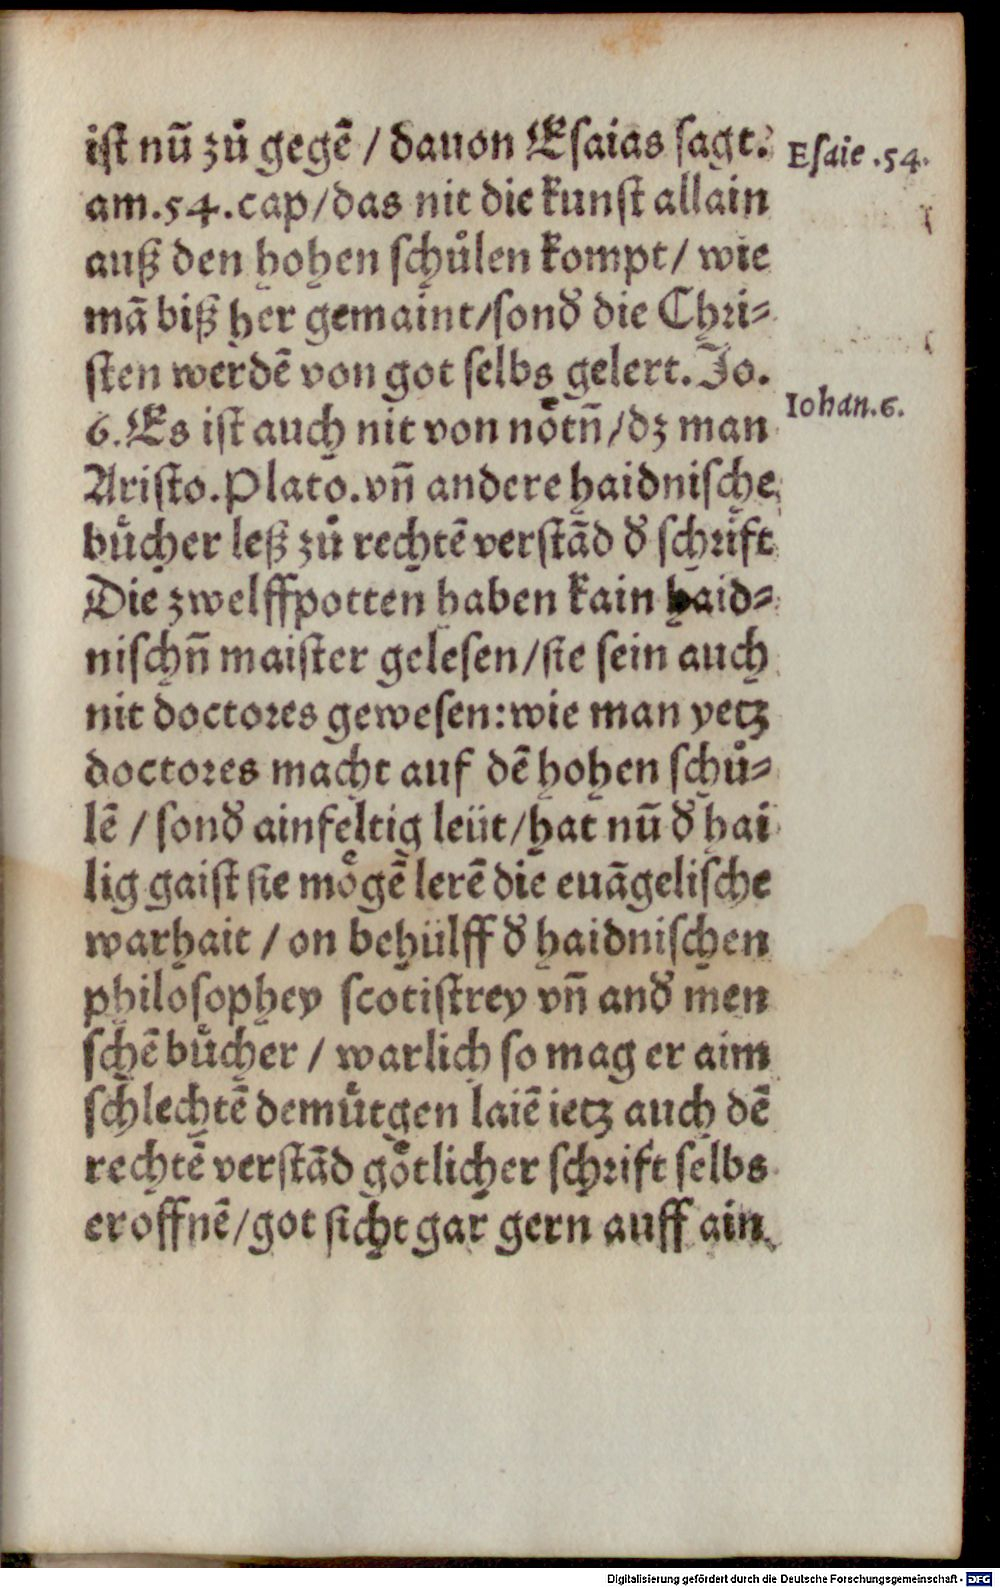 ist nū zů gegē / dauon Esaias sagt. Esaie .54.
am.54.cap/das nit die kunst allain
auß den hohen schůlen kompt / wie
mā biß her gemaint/sonđ die Chri⸗
sten werdē von got selbs gelert. Jo.
6. Es ist auch nit von nötn̄/dz man Iohan.6.
Aristo.Plato.vn̄ andere haidnische
bücher leß zů rechtē verstād đ schrift
Die zwelffpotten haben kain haid⸗
nischn̄ maister gelesen/sie sein auch
nit doctores gewesen:wie man yetz
doctores macht auf dē hohen schů⸗
lē / sonđ ainfeltig leüt/hat nū đ hai
lig gaist sie mögē lerē die euāgelische
warhait / on behülff đ haidnischen
philosophey scotistrey vn̄ anđ men
schē bücher / warlich so mag er aim
schlechtē demütgen laiē ietz auch dē
rechtē verstād götlicher schrift selbs
eroffnē/got sicht gar gern auff ain
Digitalisierung gefördert durch die Deutsche Forschungsgemeinschaft - DFG